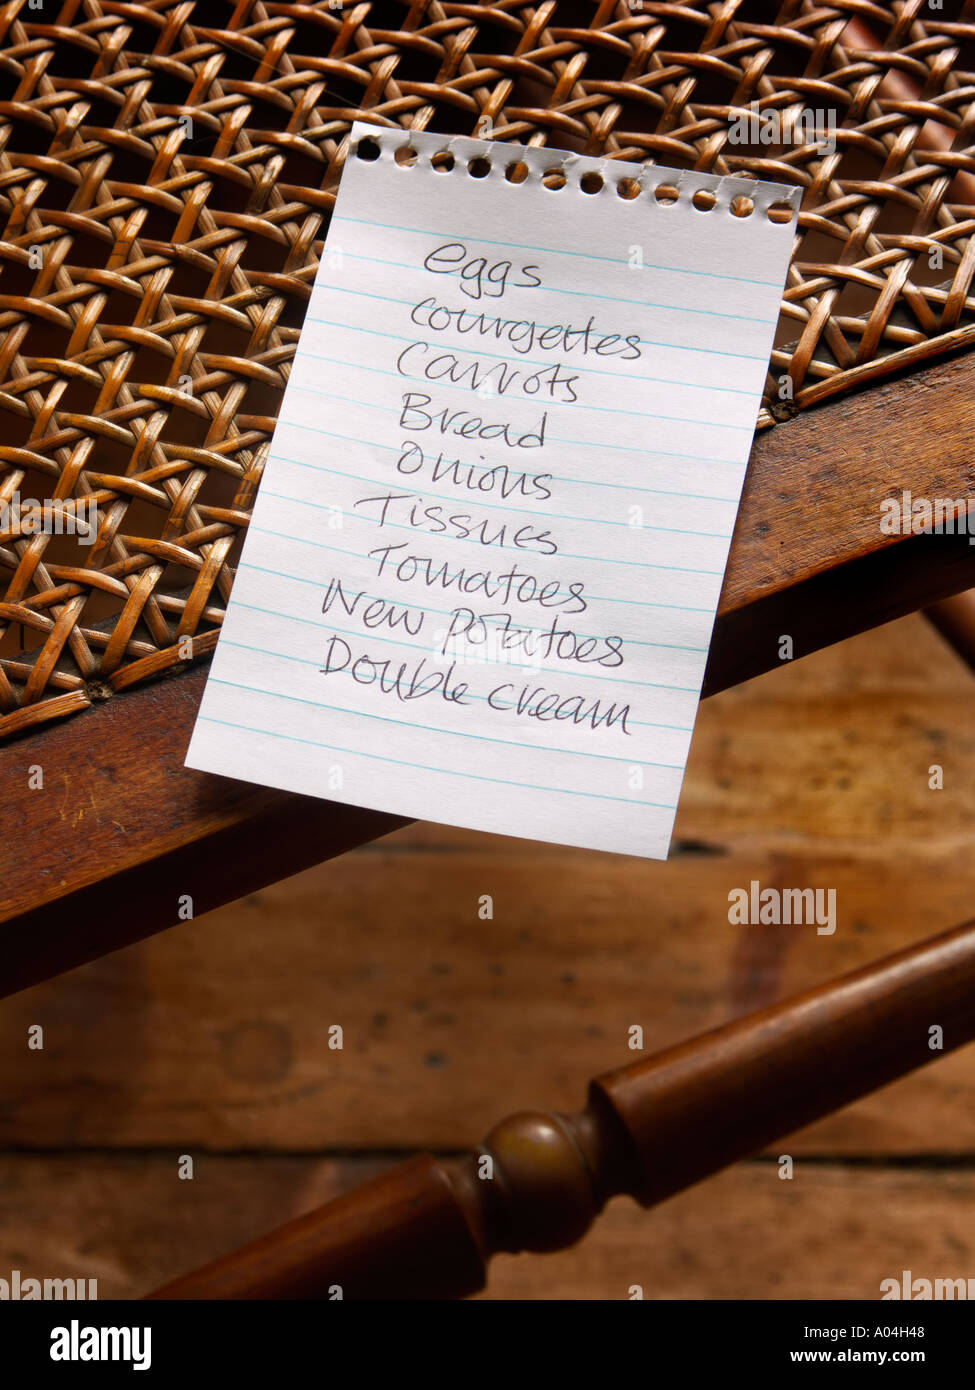 eggs
courgettes
Carrots
Bread
Onions
Tissues
Tomatoes
New potatoes
Double cream
alamy
Image ID: A04H48
www.alamy.com